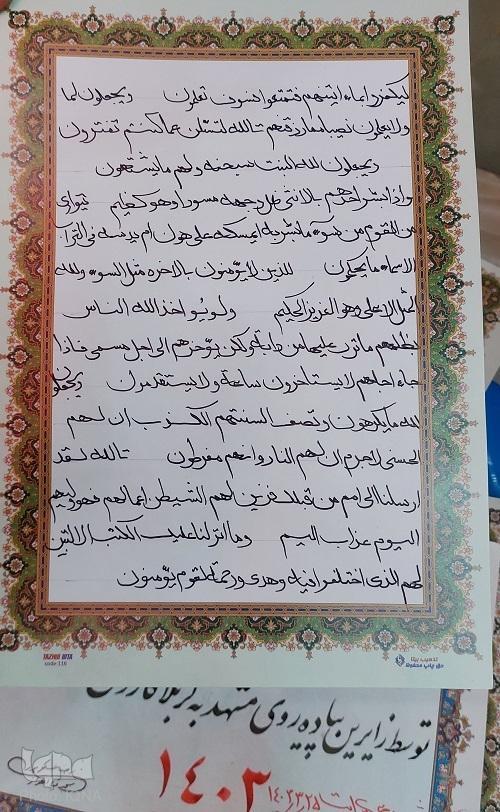 لیکفروا بماء اتینهم فتمتعوا فسوف تعلمون ویجعلون لما
ولا یعلمون نصیبا مما رزقنهم تالله لتسئلن عما کنتم تفترون
ویجعلون لله البنت سبحنه ولهم ما یشتهون
واذا بشر احدهم بالانثی ظل وجهه مسودا وهو کظیم یتوای
من القوم من سوء ما بشر به ایمسکه علی هون ام یدسه فی التراب
الا ساء ما یحکمون للذین لا یؤمنون بالاخره مثل السوء ولله
المثل الاعلی وهو العزیز الحکیم ولو یؤاخذ الله الناس
بظلمهم ما ترک علیها من دابة ولکن یؤخرهم الی اجل مسمی فاذا
جاء اجلهم لا یستاخرون ساعة ولا یستقدمون ویجعلون
لله ما یکرهون وتصف السنتهم الکذب ان لهم
الحسنی لا جرم ان لهم النار وانهم مفرطون تالله لقد
ارسلنا الی امم من قبلک فزین لهم الشیطن اعملهم فهو ولیهم
الیوم عذاب الیم وما انزلنا علیک الکتب الا لتبین
لهم الذی اختلفوا فیه وهدی ورحمة لقوم یؤمنون
TAZHIB BITA
code:116
تذهیب بیتا
حق چاپ محفوظ
توسط زایرین پیاده روی مشهد به کربلا
۱۴۰۳
IQNA